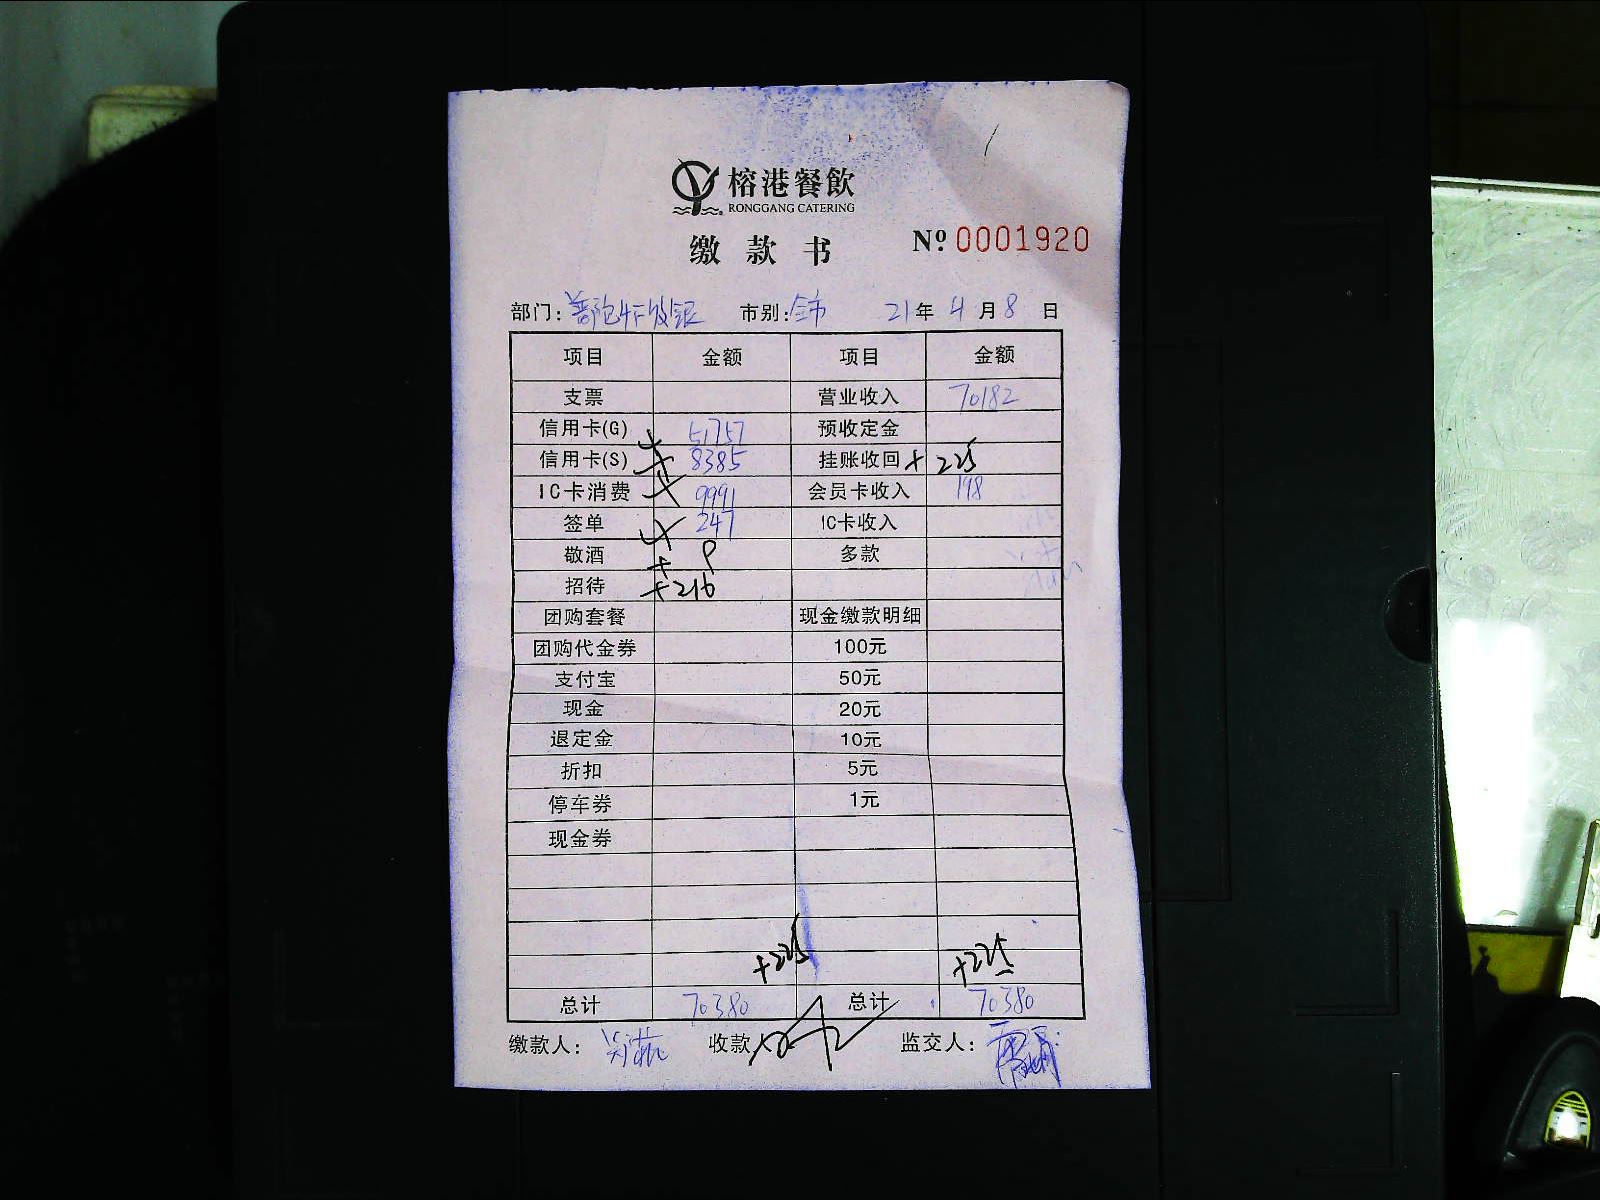 榕港餐飲
RONGGANG CATERING
缴款书 № 0001920
部门: 市别: 全市 21年 4月 8日
项目 金额 项目 金额
支票 营业收入 70182
信用卡(G) 51757 预收定金
信用卡(S) 8385 挂账收回 + 225
IC卡消费 9991 会员卡收入 198
签单 247 IC卡收入
敬酒 + 9 多款
招待 +216
团购套餐 现金缴款明细
团购代金券 100元
支付宝 50元
现金 20元
退定金 10元
折扣 5元
停车券 1元
现金券
+225 +225
总计 70380 总计 70380
缴款人: 收款 监交人: